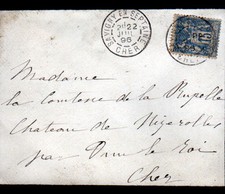 SAVIGNY EN SEPTAINE
22
JUIL
96
CHER
15
Madame
la Comtesse de la Chapelle
Chateau de Vizerolles
par Dun le Roi
Cher